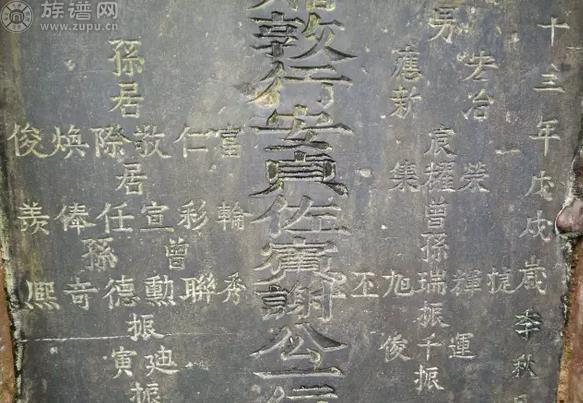 族谱网
www.zupu.cn
十三年戊戌歲季秋
捷
宏冶榮輝運
男宸耀曾孫瑞振千振
舊新集旭俊
丕
敦行安貞佐賓謝公
富輪秀
仁彩聯
曾
敬宣勳廸
孫居際居任德振寅振
煥俸孫奇
俊羨熙